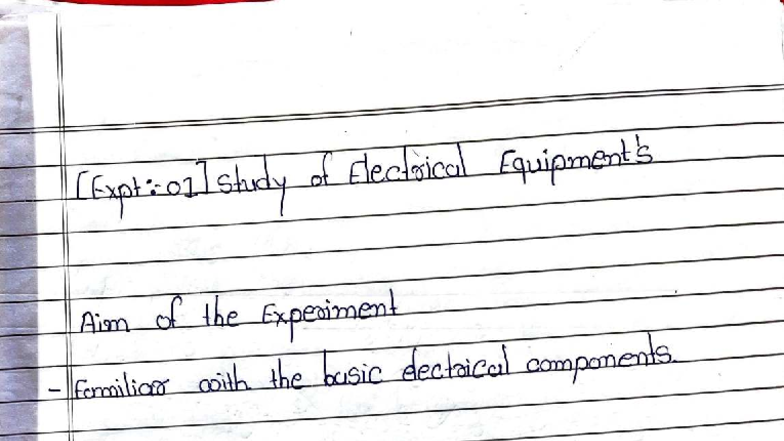 [Expt:-01] Study of Electrical Equipment's
Aim of the Experiment
- Familiar with the basic electrical components.